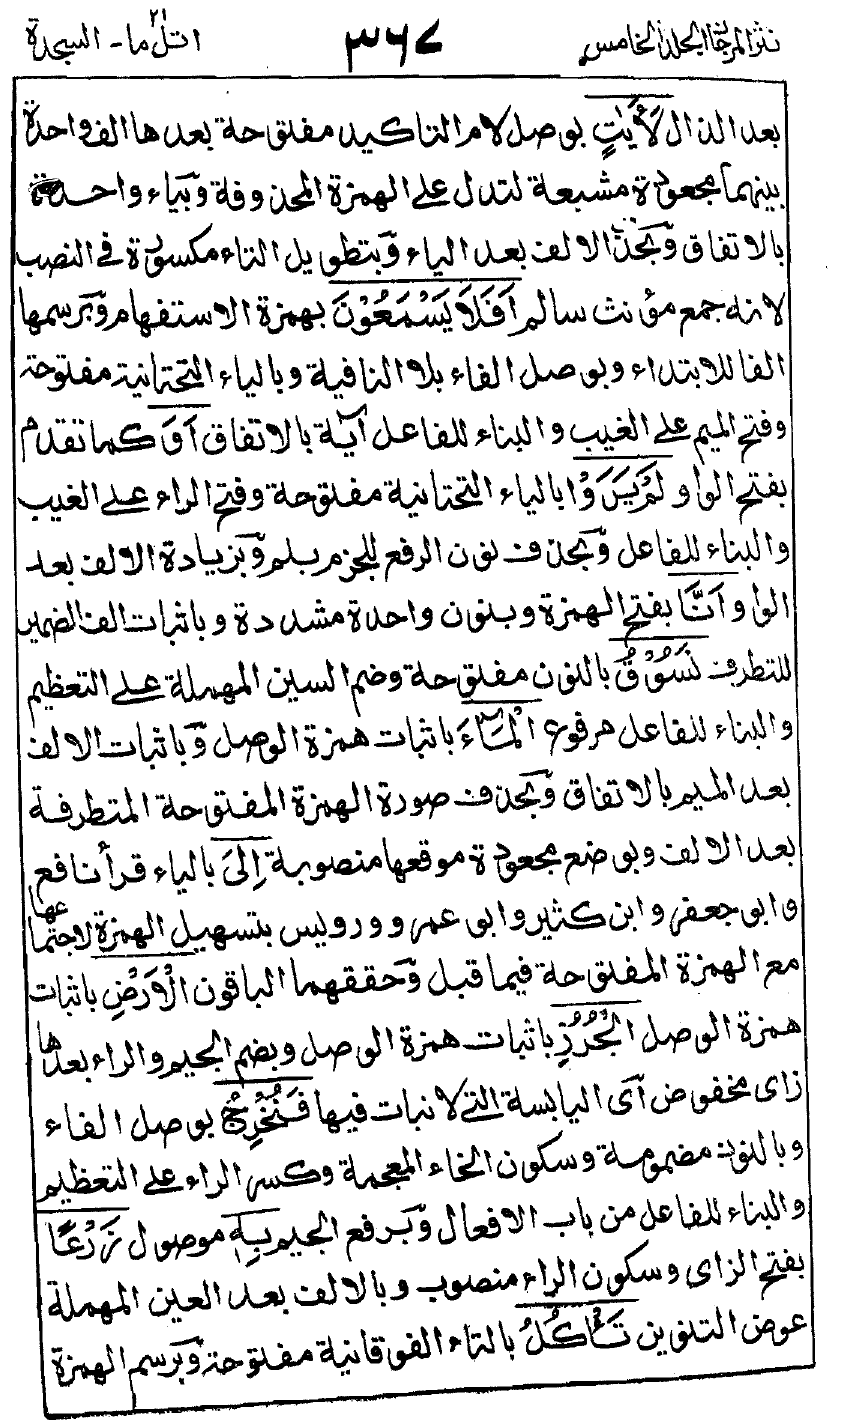 نثر المرجان الجلد الخامس ٣٦٧ اتل ما - السجدة ٢١
بعد الذال لَأٰيٰتٍ بوصل لام التاكيد مفتوحة بعدها الف واحدة
بينهما مجعودة مشبعة لتدل على الهمزة المحذوفة وبياء واحدة
بالاتفاق وبحذف الالف بعد الياء وبتطويل التاء مكسورة فى النصب
لانه جمع مؤنث سالم اَفَلَا يَسْمَعُوْنَ بهمزة الاستفهام وبرسمها
الفا للابتداء وبوصل الفاء بلا النافية وبالياء التحتانية مفتوحة
وفتح الميم على الغيب والبناء للفاعل آية بالاتفاق اَوَ كما تقدم
بفتح الواو لَمْ يَرَوْا بالياء التحتانية مفتوحة وفتح الراء على الغيب
والبناء للفاعل وبحذف نون الرفع للجزم بلم وبزيادة الالف بعد
الواو اَنَّا بفتح الهمزة وبنون واحدة مشددة وباثبات الف الضمير
للتطرف نَسُوْقُ بالنون مفتوحة وضم السين المهملة على التعظيم
والبناء للفاعل مرفوع الْمَآءَ باثبات همزة الوصل وباثبات الالف
بعد الميم بالاتفاق وبحذف صورة الهمزة المفتوحة المتطرفة
بعد الالف وبوضع مجعودة موقعها منصوبة اِلَى بالياء قرأ نافع
وابو جعفر وابن كثير وابو عمرو ورويس بتسهيل الهمزة لاجتماعها
مع الهمزة المفتوحة فيما قبل وحققهما الباقون الْاَرْضِ باثبات
همزة الوصل الْجُرُزِ باثبات همزة الوصل وبضم الجيم والراء بعدها
زاى مخفوض اى اليابسة التى لا نبات فيها فَنُخْرِجُ بوصل الفاء
وبالنون مضمومة وسكون الخاء المعجمة وكسر الراء على التعظيم
والبناء للفاعل من باب الافعال وبرفع الجيم بِهٖ موصول زَرْعًا
بفتح الزاى وسكون الراء منصوب وبالالف بعد العين المهملة
عوض التنوين تَأْكُلُ بالتاء الفوقانية مفتوحة وبرسم الهمزة